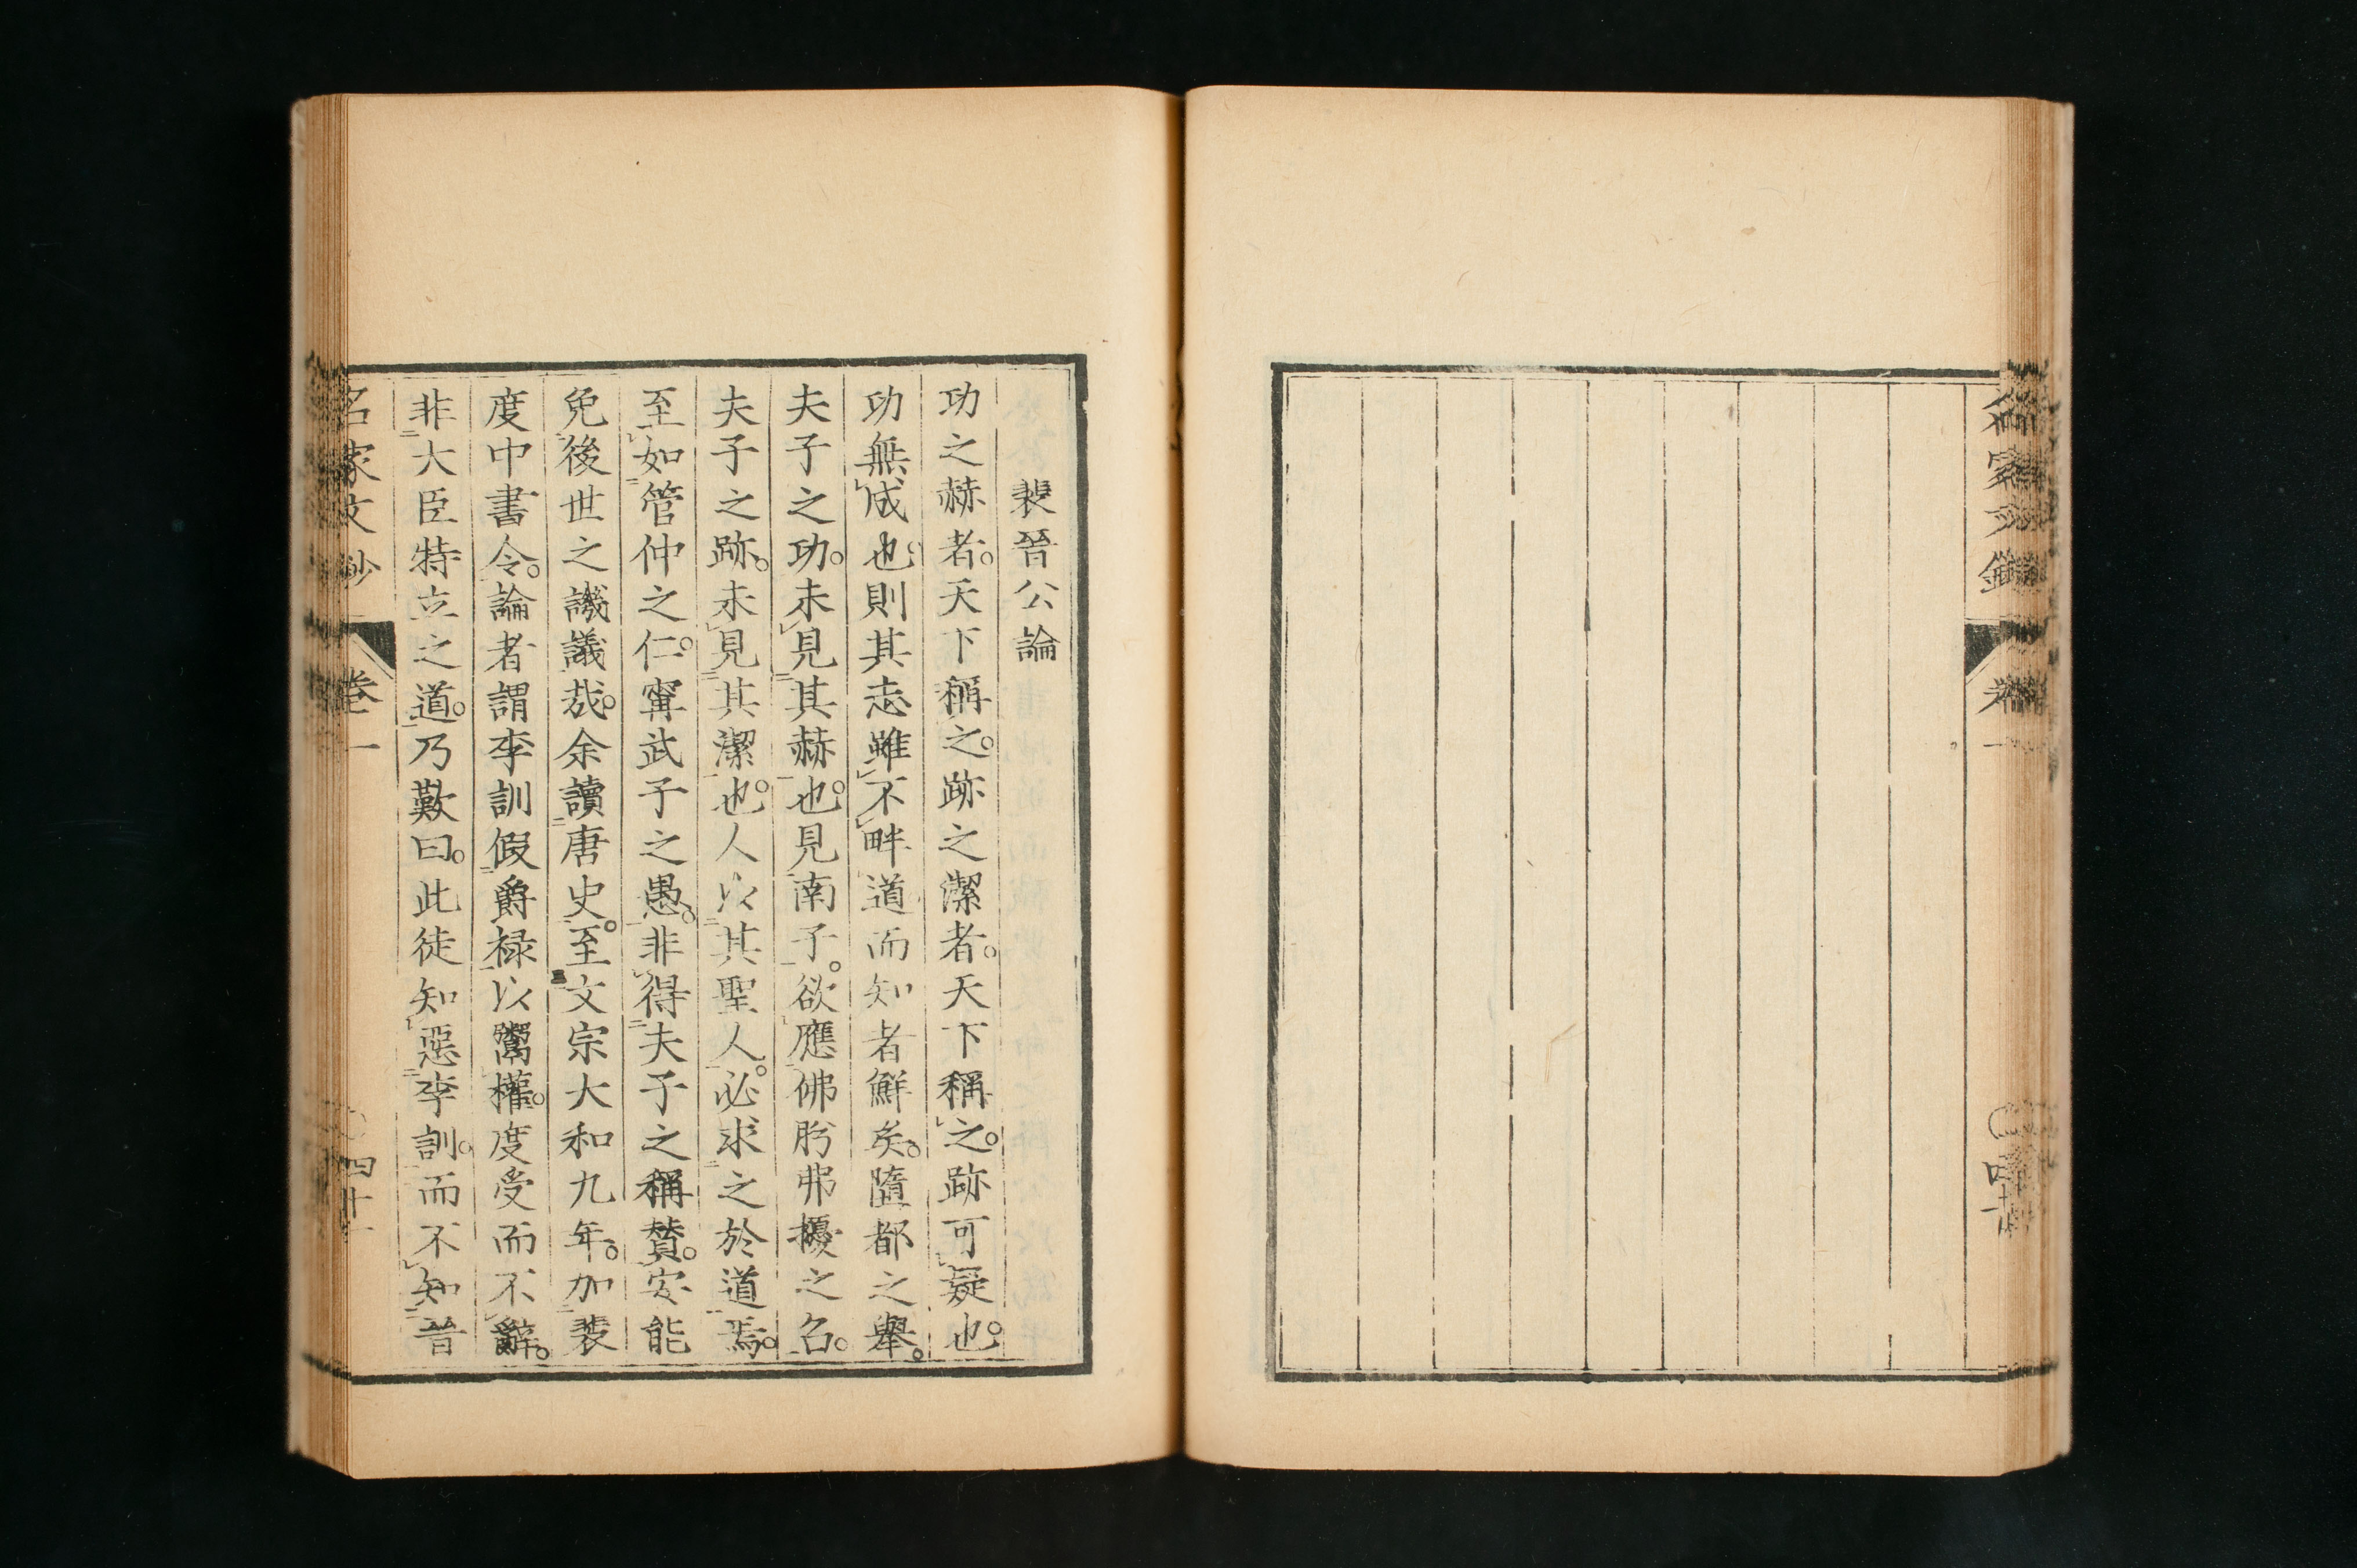 名家文鈔
卷一
裴晉公論
功之赫者。天下稱之。跡之潔者。天下稱之。跡可疑也。
功無成也。則其志雖不畔道而知者鮮矣。墮都之舉。
夫子之功。未見其赫也。見南子。欲應佛肸弗擾之召。
夫子之跡。未見其潔也。人以其聖人。必求之於道焉。
至如管仲之仁。甯武子之愚。非得夫子之稱賛。安能
免後世之譏議哉。余讀唐史。至文宗大和九年。加裴
度中書令。論者謂李訓假爵祿以鬻權。度受而不辭。
非大臣特立之道。乃歎曰。此徒知惡李訓。而不知昔
名家文鈔
卷一
四十一